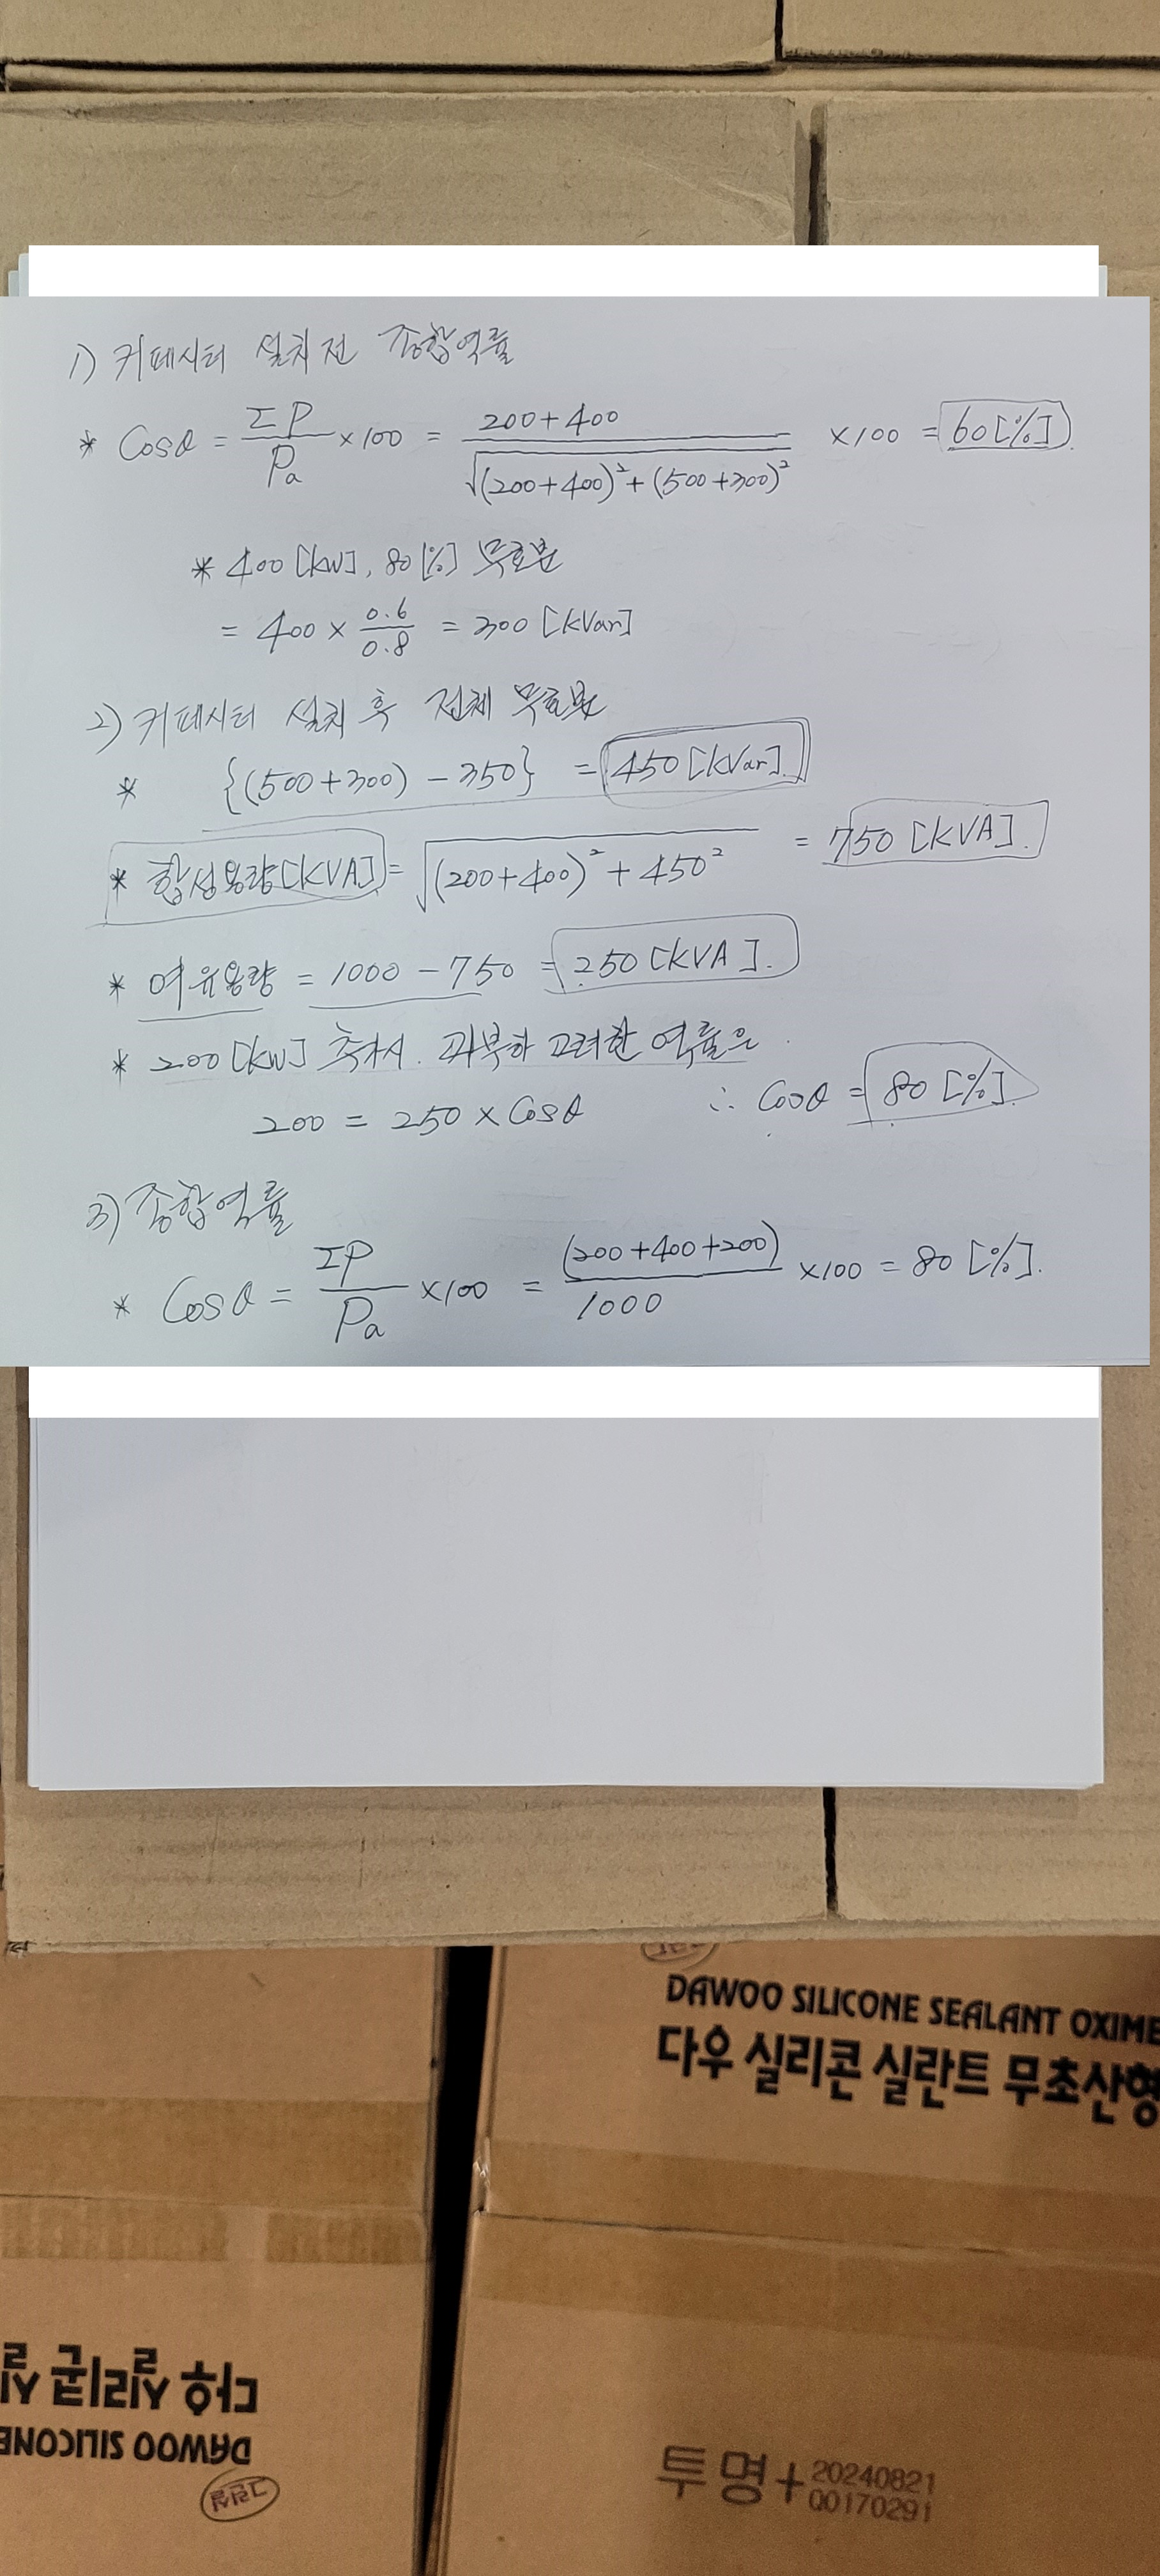 1) 커패시터 설치 전 종합역률
* Cosθ = ΣP/Pa × 100 = 200+400/√(200+400)²+(500+300)² ×100 = 60[%]
* 400[kW], 80[%] 무효분
= 400 × 0.6/0.8 = 300 [kVar]
2) 커패시터 설치 후 전체 무효분
* {(500+300) - 350} = 450[kVar].
* 합성용량[kVA] = √(200+400)² + 450² = 750 [kVA].
* 여유용량 = 1000 - 750 = 250[kVA].
* 200[kW] 추가시. 과부하 고려한 역률은
200 = 250 × Cosθ ∴ Cosθ = 80[%].
3) 종합역률
* Cosθ = ΣP/Pa ×100 = (200+400+200)/1000 ×100 = 80 [%].
DAWOO SILICONE SEALANT OXIME
다우 실리콘 실란트 무초산형
다우 실리콘 실
DAWOO SILICONE
투명+20240821
Q0170291